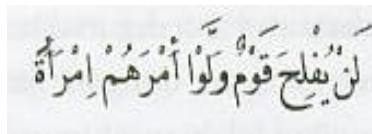 لَنْ يُفْلِحَ قَوْمٌ وَلَّوْا أَمْرَهُمْ اِمْرَأَةً